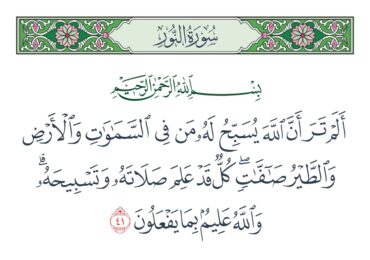 سُورَةُ النُّورِ
بِسْمِ ٱللَّهِ ٱلرَّحْمَٰنِ ٱلرَّحِيمِ
أَلَمْ تَرَ أَنَّ ٱللَّهَ يُسَبِّحُ لَهُۥ مَن فِى ٱلسَّمَٰوَٰتِ وَٱلْأَرْضِ
وَٱلطَّيْرُ صَٰٓفَّٰتٍۖ كُلٌّ قَدْ عَلِمَ صَلَاتَهُۥ وَتَسْبِيحَهُۥۗ
وَٱللَّهُ عَلِيمٌۢ بِمَا يَفْعَلُونَ ٤١